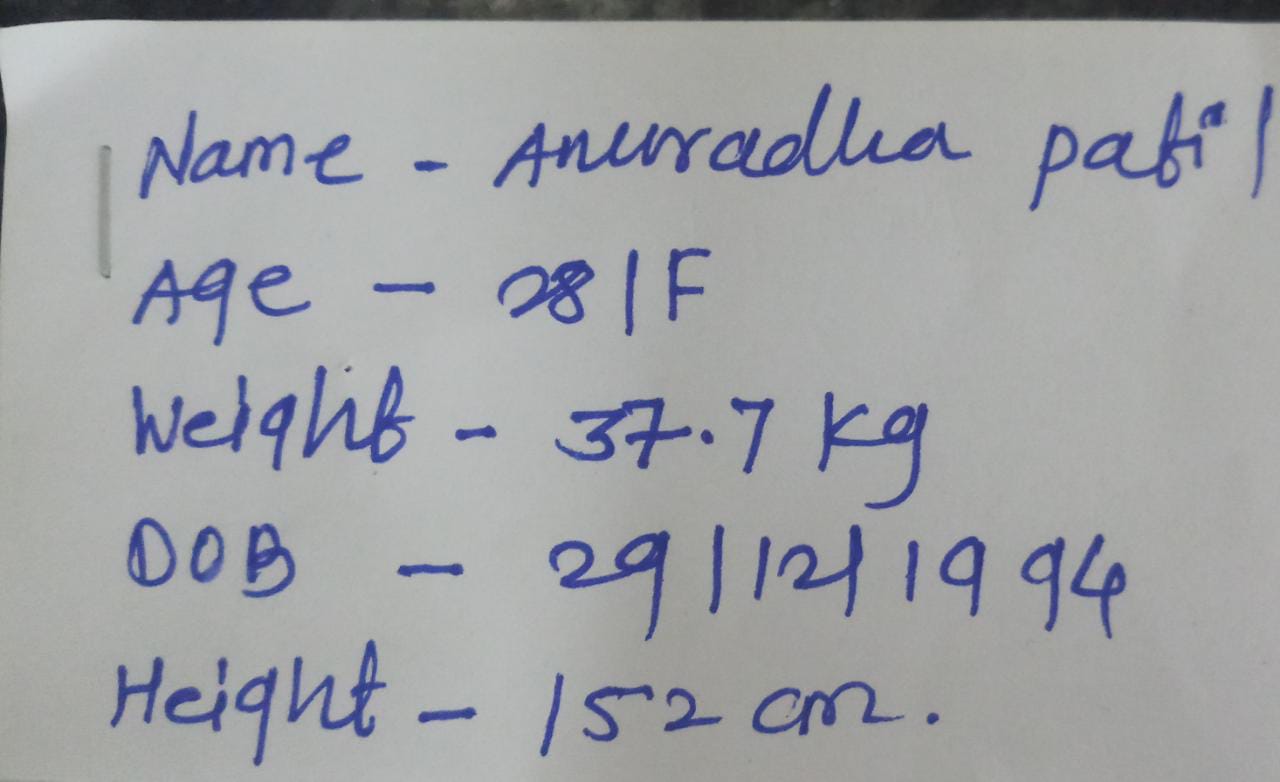 Name - Anuradha patil
Age - 28/F
Weight - 37.7 kg
DOB - 29/12/1994
Height - 152 cm.